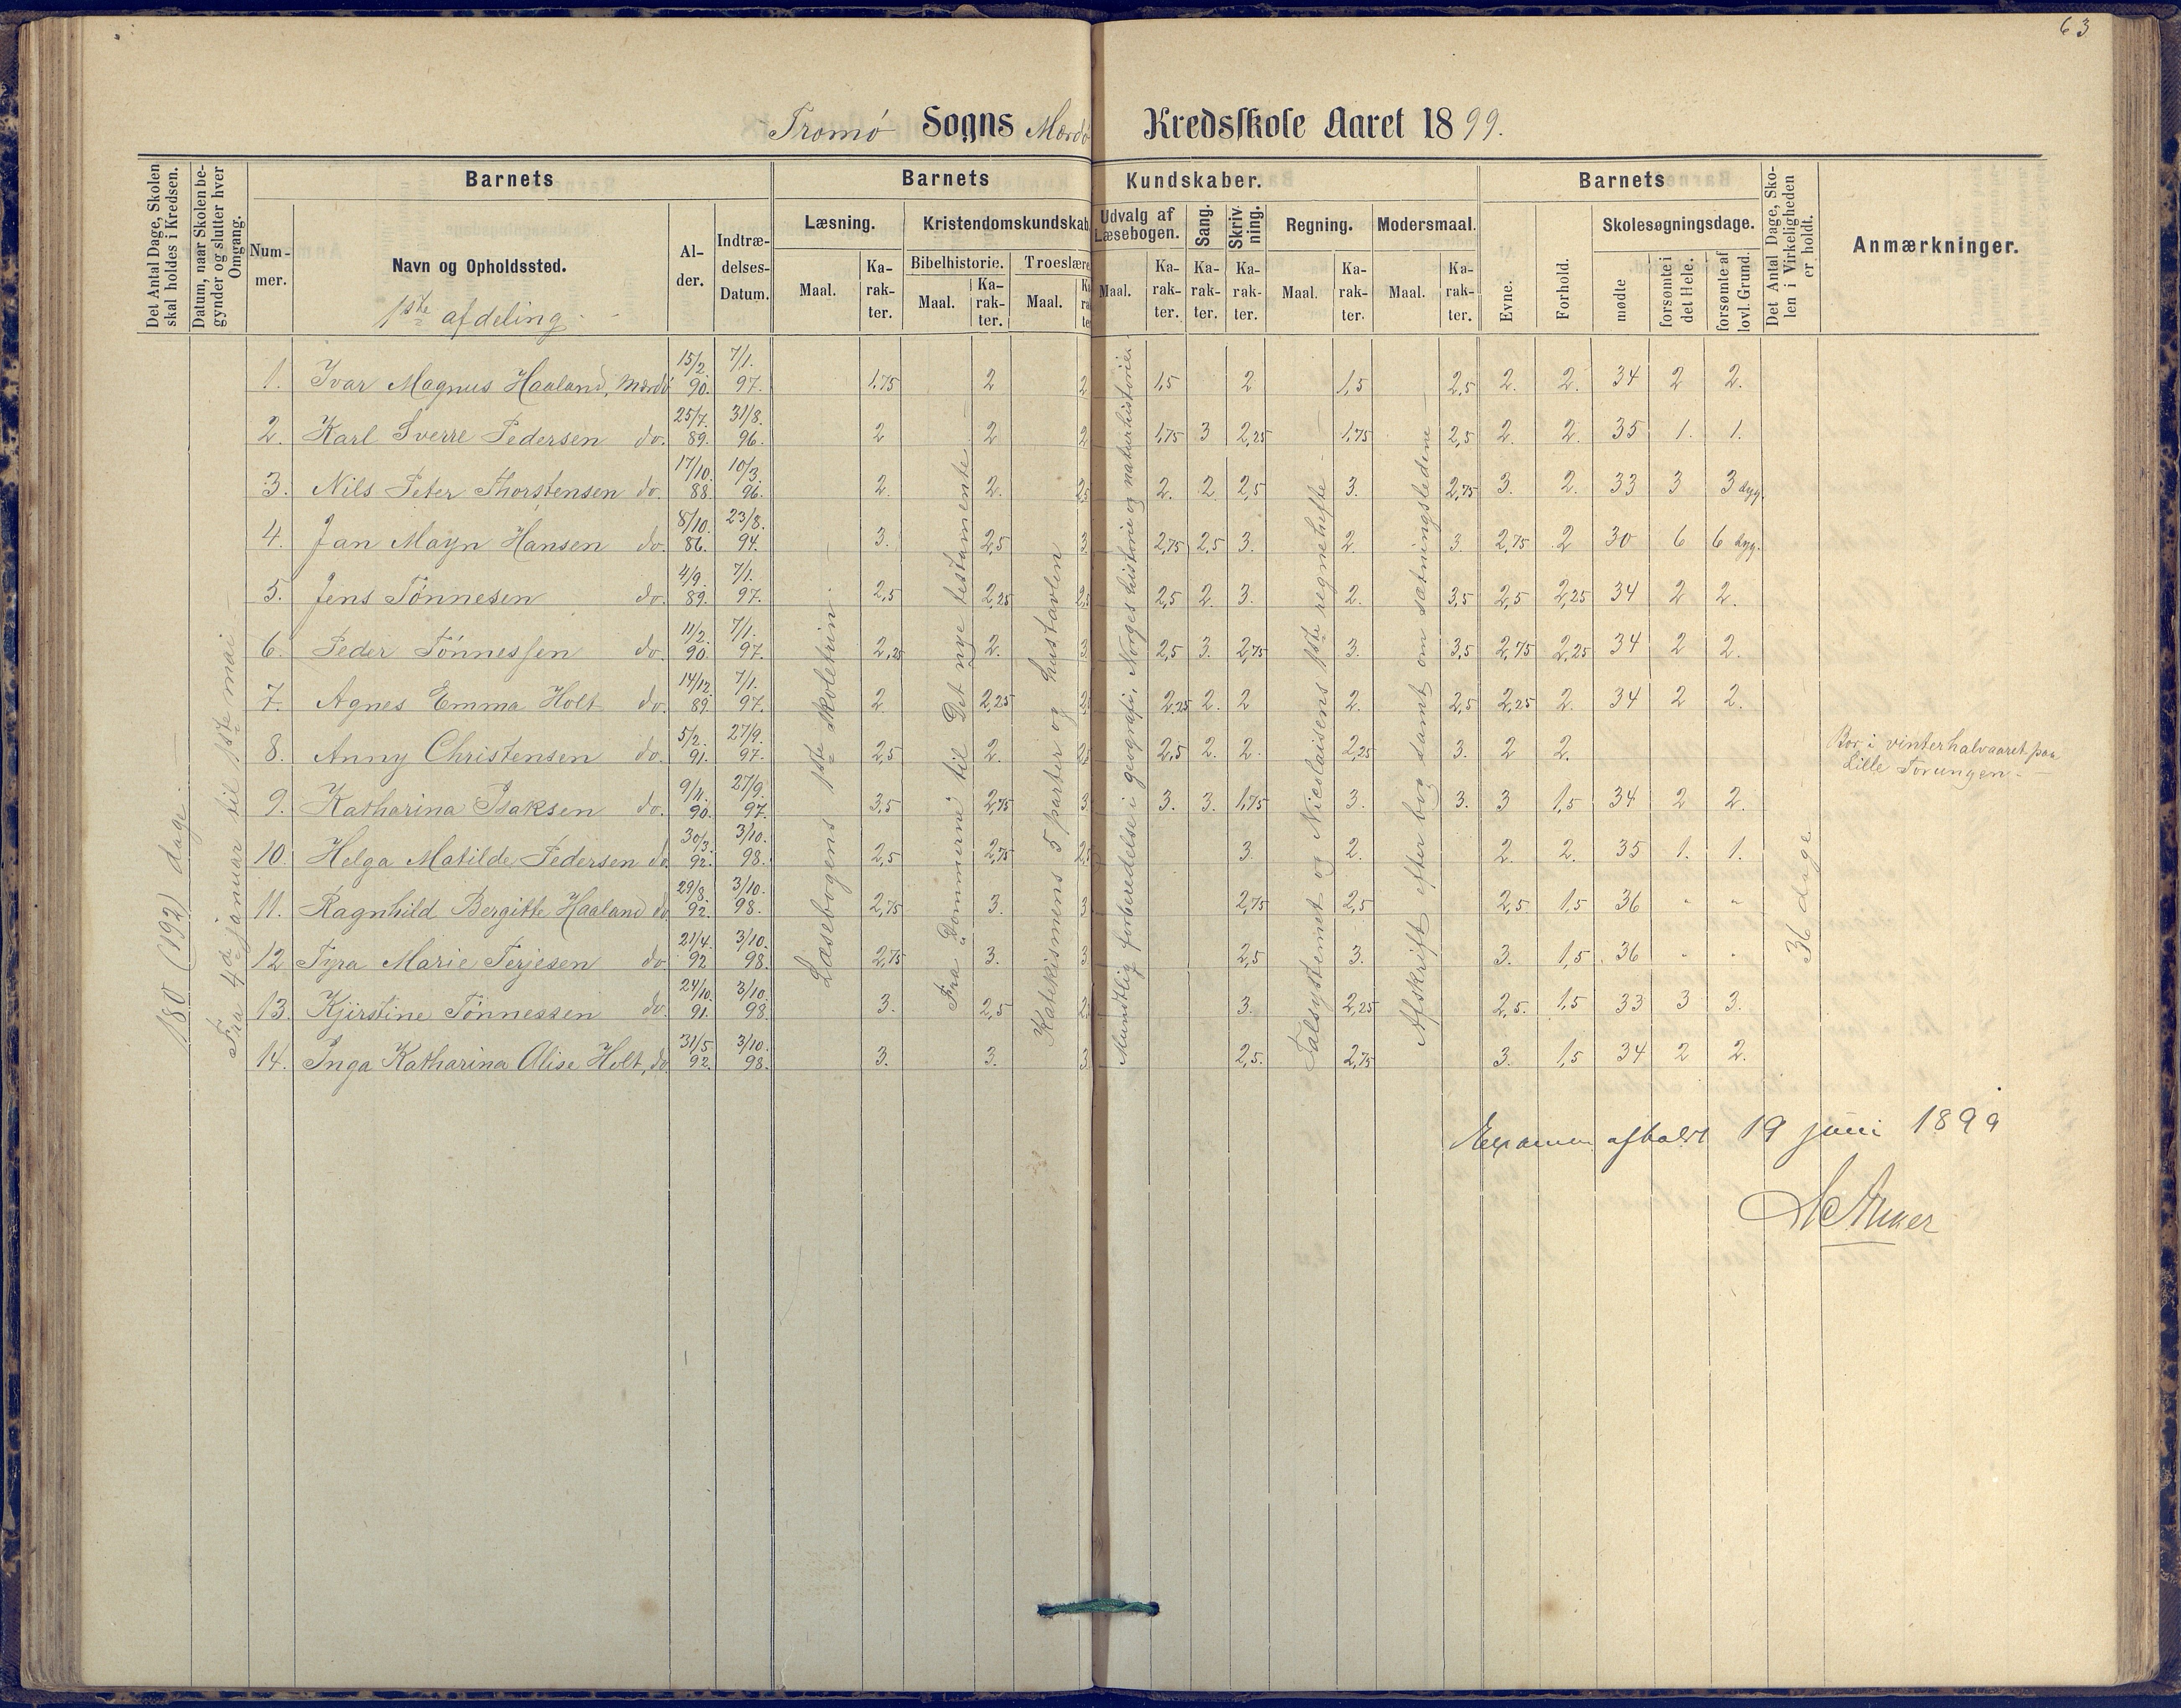 63
Tromø Sogns Mærdø Kredsskole Aaret 1899.
Det Antal Dage, Skolen skal holdes i Kredsen.
Datum, naar Skolen begynder og slutter hver Omgang.
Barnets
Barnets Kundskaber.
Barnets
Det Antal Dage, Skolen i Virkeligheden er holdt.
Anmærkninger.
Nummer.
Navn og Opholdssted.
1ste afdeling
Alder.
Indtrædelses-Datum.
Læsning.
Kristendomskundskab
Udvalg af Læsebogen.
Sang.
Skrivning.
Regning.
Modersmaal.
Evne.
Forhold.
Skolesøgningsdage.
Bibelhistorie.
Troeslære
Maal. Karakter. Maal. Karakter. Maal. Maal. Karakter. Karakter. Karakter. Maal. Karakter. Maal. Karakter.
mødte
forsømte i det Hele.
forsømte af lovl. Grund.
180 (192) dage.
Fra 4de januar til 1ste mai
Læsebogens 1ste skoletrin.
Fra Dommerne til Det nye testamente
Katekismens 5 parter og hustavlen
Mundtlig forberedelse i geografi, Norges historie og naturhistorie
Talsystemet og Nicolaisens 1ste regnehefte
Afskrift efter bog samt om sætningsledene
36 dage
1. Ivar Magnus Haaland, Mærdø 15/2. 90. 7/1. 97. 1,75 2 2 1,5 2 1,5 2,5 2. 2. 34 2 2.
2. Karl Sverre Pedersen do. 25/7. 89. 31/8. 96. 2 2 2 1,75 3 2,25 1,75 2,5 2. 2. 35 1. 1.
3. Nils Peter Thorstensen do. 17/10. 88. 10/3. 96. 2. 2. 2,5 2. 2 2,5 3. 2,75 3. 2. 33 3 3 syg.
4. Jan Mayn Hansen do. 8/10. 86. 23/8. 94. 3. 2,5 3. 2,75 2,5 3. 2. 3. 2,75 2 30 6 6 syg.
5. Jens Tønnesen do. 4/9. 89. 7/1. 97. 2,5 2,25 2,5 2,5 2. 3. 2. 3,5 2,5 2,25 34 2 2.
6. Peder Tønnessen do. 11/2. 90. 7/1. 97. 2,25 2. 3 2,5 3. 2,75 3. 3,5 2,75 2,25 34 2 2.
7. Agnes Emma Holt do. 14/12. 89. 7/1. 97. 2 2,25 2,5 2,25 2. 2 2. 2,5 2,25 2. 34 2 2.
8. Anny Christensen do. 5/2. 91. 27/9. 97. 2,5 2. 2,5 2,5 2. 2. 2,25 3. 2 2. Bor i vinterhalvaaret paa
Lille Torungen.
9. Katharina Isaksen do. 9/11. 90. 27/9. 97. 3,5 2,75 3 3. 3. 1,75 3. 3. 3 1,5 34 2 2.
10. Helga Matilde Pedersen do 30/3. 92. 3/10. 98. 2,5 2,75 2,5 3. 2. 2. 2. 35 1. 1.
11. Ragnhild Bergitte Haaland do 29/8. 92. 3/10. 98. 2,75 3. 3 2,75 2,5 2,5. 1,5 36 " "
12 Tyra Marie Terjesen do 21/4. 92 3/10. 98. 2,75 3. 3 2,5 3. 3. 1,5 36 " "
13. Kjirstine Tønnessen do. 24/10. 91. 3/10. 98. 3. 2,5 2,5 3. 2,25 2,5. 1,5 33 3 3.
14. Inga Katharina Alise Holt, do. 31/5. 92. 3/10. 98. 3. 3. 3 2,5. 2,75 3. 1,5 34 2 2.
Examen afholdt 19 juni 1899